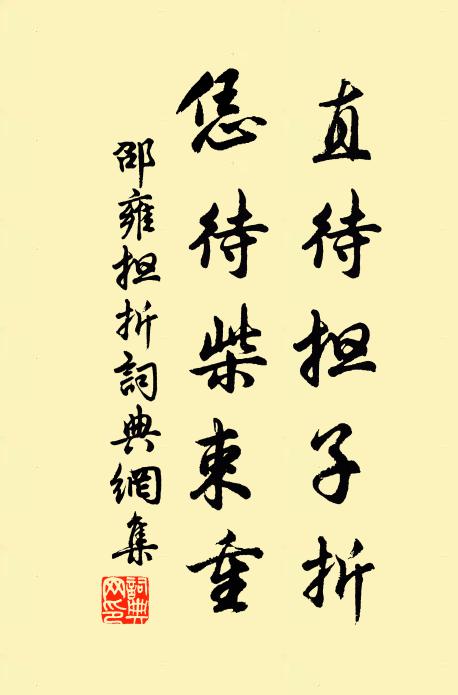 直待担子折
恁待柴束重
邵雍担折詞典網集
詞典